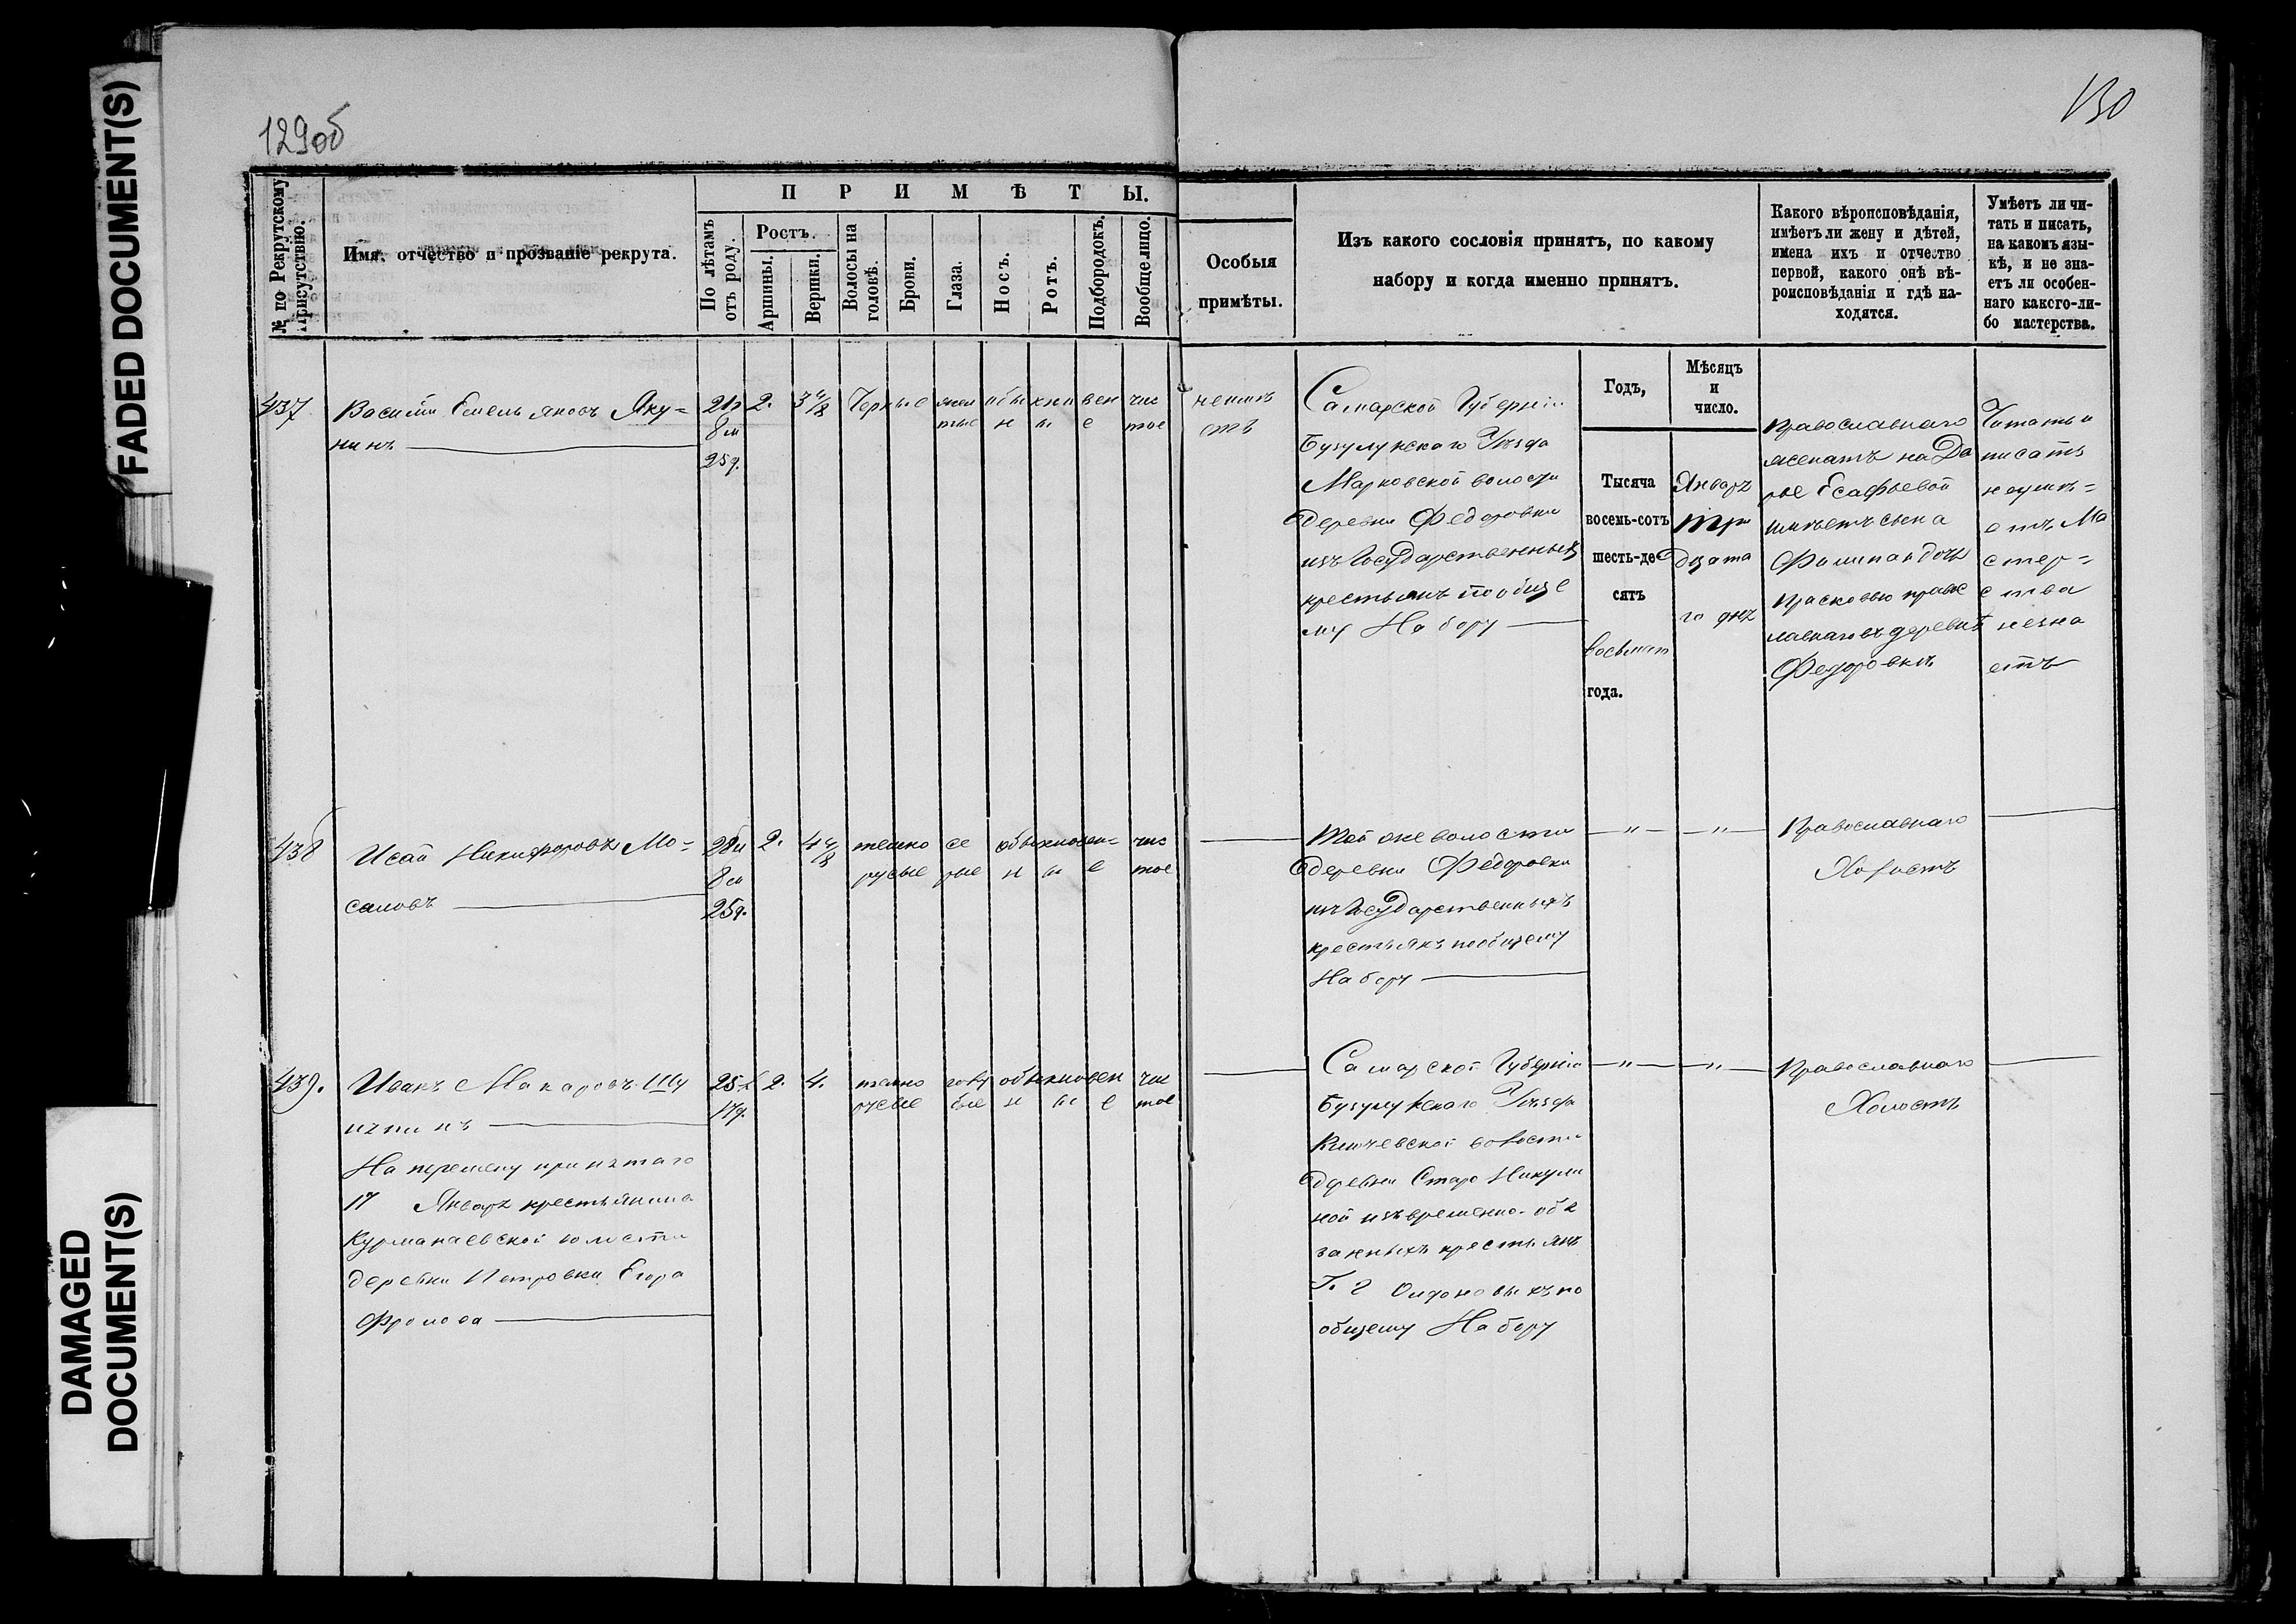 FADED DOCUMENT(S)
DAMAGED
DOCUMENT(S)
129об
130
№ по Рекрутскому
Присутствію.
Имя, отчество и прозваніе рекрута.
ПРИМѢТЫ.
По лѣтамъ
отъ роду.
Ростъ.
Аршины.
Вершки.
Волосы на
головѣ.
Брови.
Глаза.
Носъ.
Ротъ.
Подбородокъ.
Вообще лицо.
Особыя
примѣты.
Изъ какого сословія принятъ, по какому
набору и когда именно принятъ.
Какого вѣроисповѣданія,
имѣетъ ли жену и дѣтей,
имена ихъ и отчество
первой, какого онѣ вѣ-
роисповѣданія и гдѣ на-
ходятся.
Умѣетъ ли чи-
тать и писать,
на какомъ язы-
кѣ, и не зна-
етъ ли особен-
наго какого-ли-
бо мастерства.
Годъ,
Мѣсяцъ
и
число.
437
Василій Емельяновъ Яку=
нинъ
21
8м
25д.
2.
3 4/8
Черные
обыкновен
ные
чис
тое
неимѣ
етъ
Самарской Губерніи
Бузулукскаго Уѣзда
Марковской волости
деревни Федоровки
изъ Государственныхъ
крестьянъ пообще
му Набору
Тысяча
восемь-сотъ
шесть-де
сятъ
восьмаго
года.
Январь
три
дцата
го дня
Православнаго
женатъ на Да
рье Есафьевой
имѣетъ сына
Филипа и дочь
Прасковью правос
лавнаго въ деревнѣ
Федоровкѣ
Читать и
писать
неумѣ=
етъ Ма
стер=
ства
незна
етъ
438
Исай Никифоровъ Мо=
саловъ
8м
25д.
2.
4 4/8
темно
русые
се
рые
обыкновен=
ные
чис
тое
Той же волости
деревни Федоровки
изъ Государственныхъ
крестьянъ пообщему
Набору
— " —
— " —
Православнаго
Холостъ
439.
Иванъ Макаровъ Шу
нинъ
На перемену принятаго
17 Января крестьянина
Курманаевской волости
деревни Петровки Егора
Фролова
25
17д.
2.
4.
темно
русые
голу
бые
обыкновен
ные
чис
тое
Самарской Губерніи
Бузулукскаго Уѣзда
Ключевской волости
деревни Старо Никули
ной изъ временно-обя
занныхъ крестьянъ
общему Набору
— " —
— " —
Православнаго
Холостъ